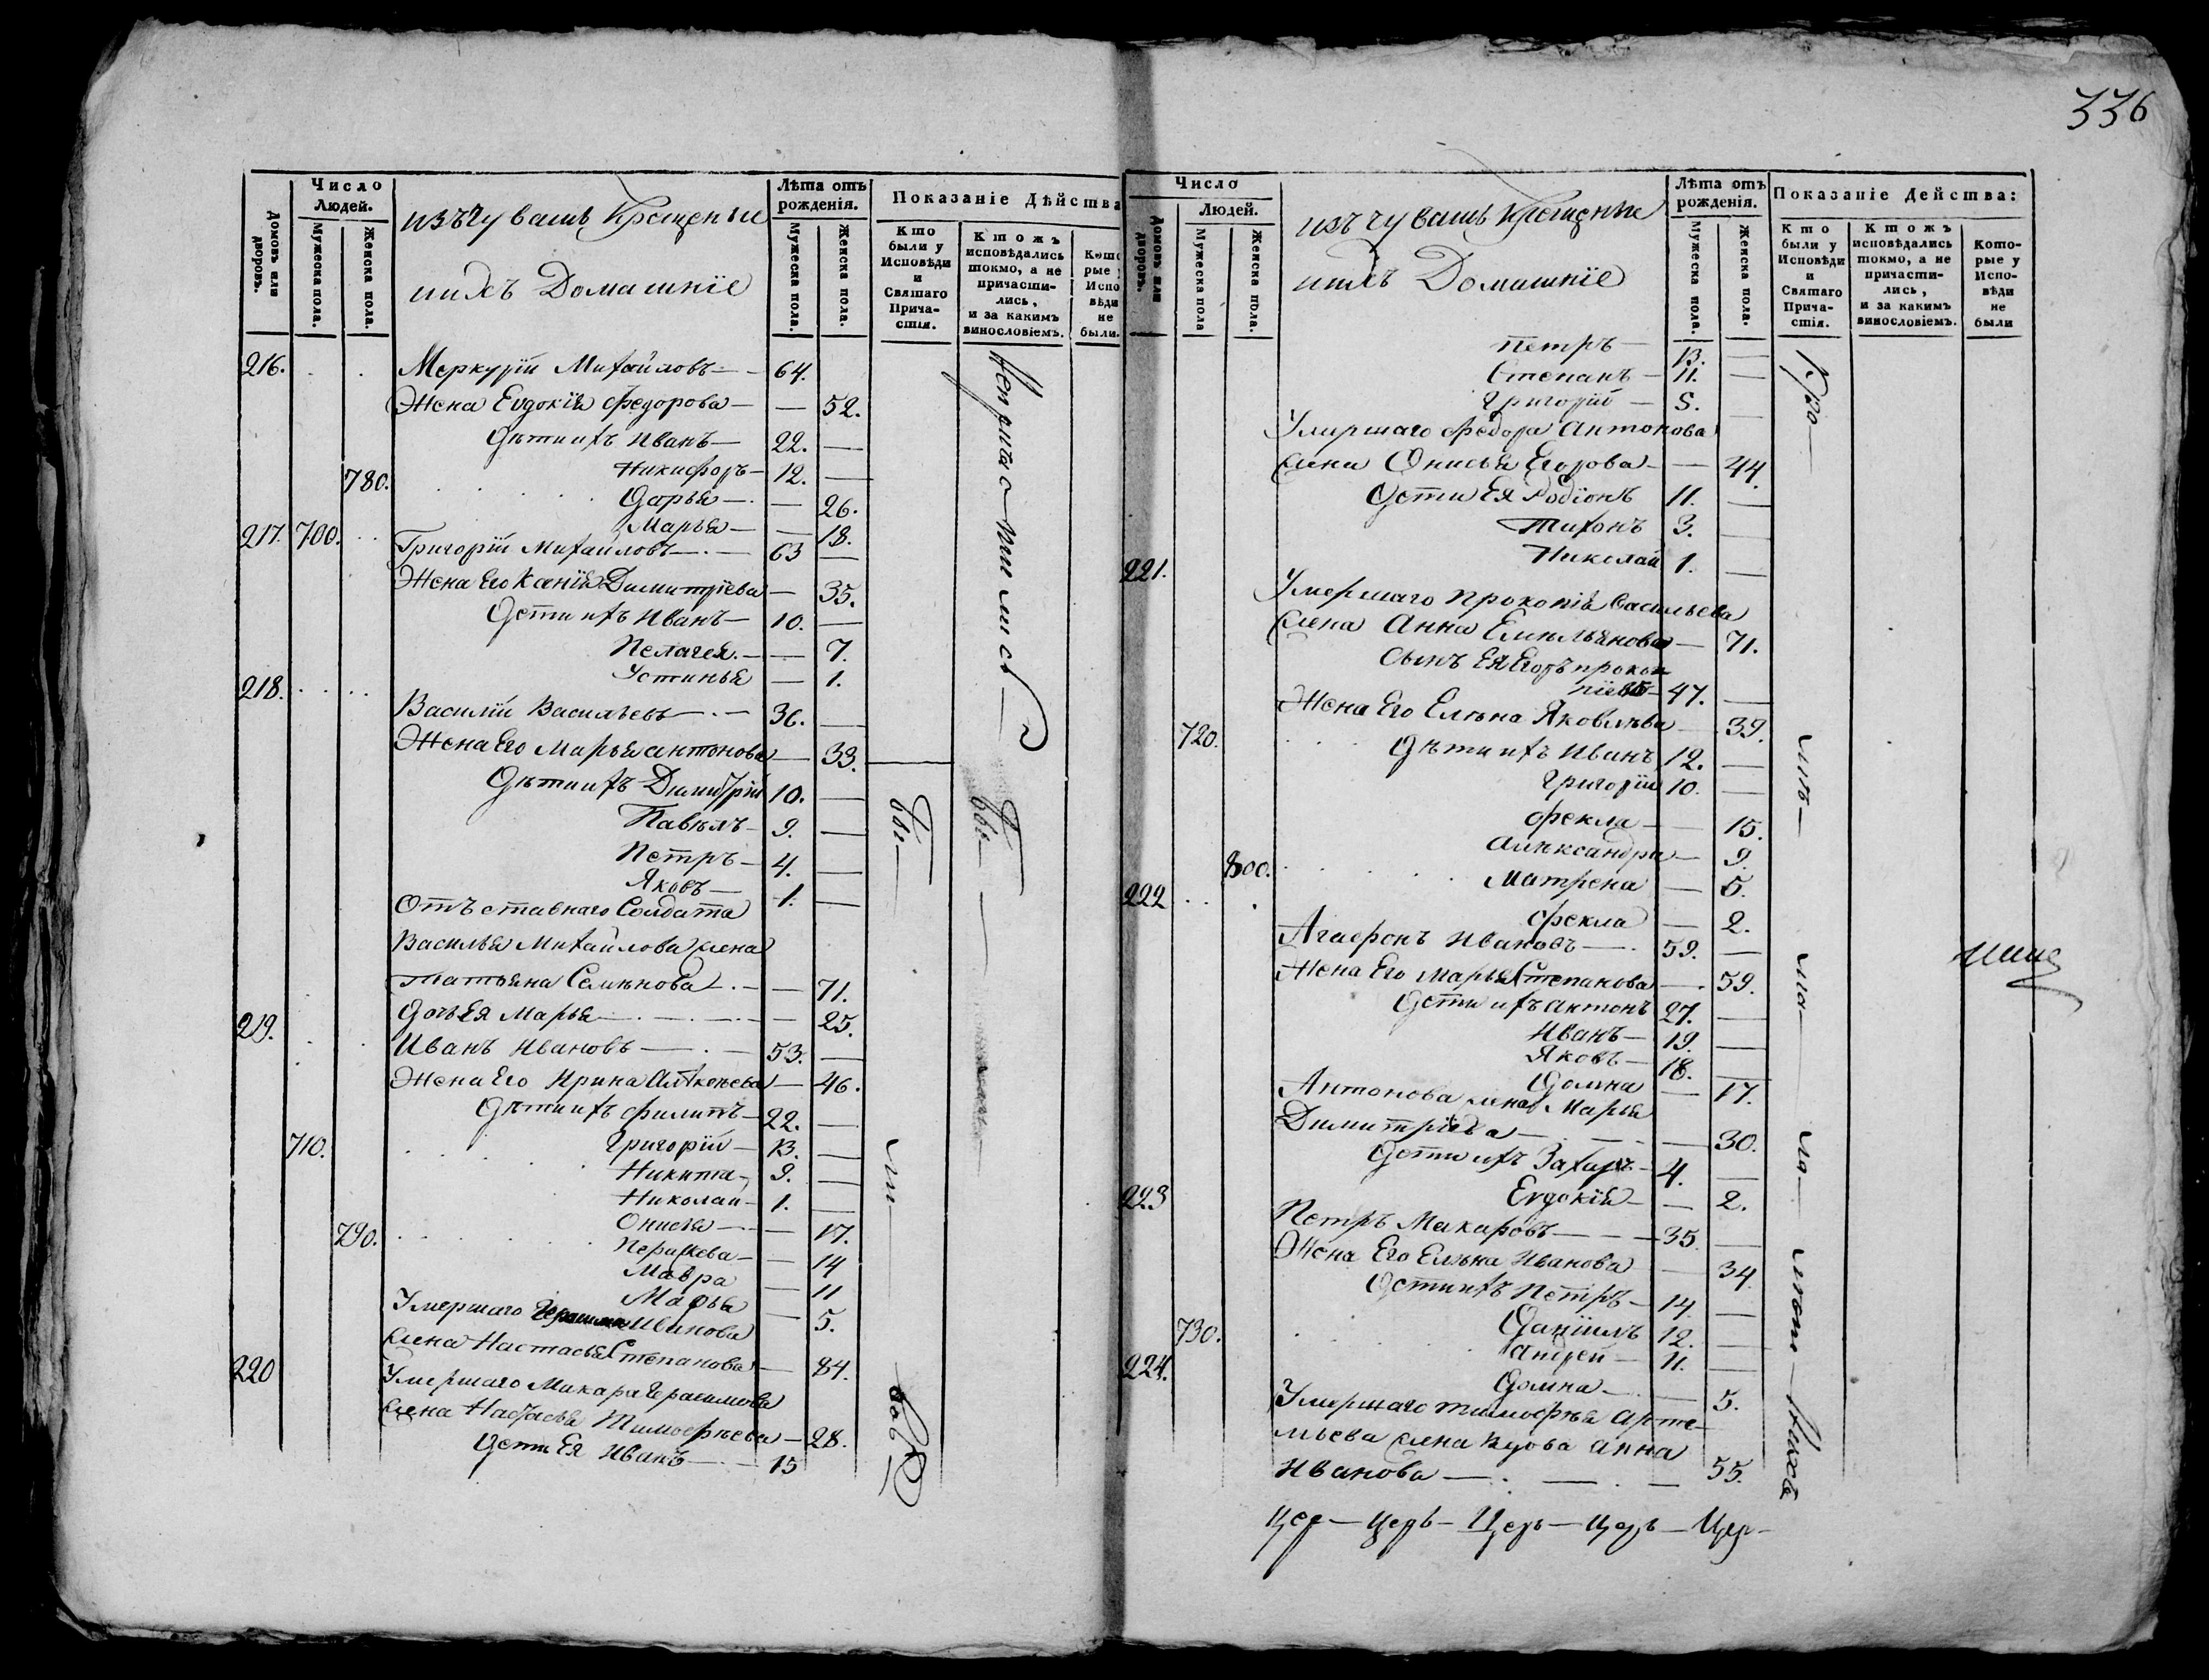 336
Домовъ или дворовъ.
Число Людей.
Мужеска пола.
Женска пола.
изъ чувашъ крещеные
и ихъ Домашніе
Лѣта отъ рожденія.
Мужеска пола.
Женска пола.
Показаніе Дѣйства
Кто были у Исповѣди и Святаго Причастія.
Ктожъ исповѣдались токмо, а не причастились, и за какимъ винословіемъ.
Которые у Исповѣди не были.
216. Меркурій Михайловъ — 64.
Жена Евдокія Федорова — 52.
Дѣти ихъ Иванъ — 22. —
Никифоръ — 12. —
780. Дарья — 26.
Марья — 18.
217. 700. Григорій Михайловъ — 63 —
Жена Его Ксенія Димитріева — 35.
Дети ихъ Иванъ — 10. —
Пелагея — 7.
Устинья — 1.
218. Василій Васильевъ — 36. —
Жена Его Марья Антонова — 33.
Дѣти ихъ Димитрій 10. —
Павелъ — 9. —
Петръ — 4. —
Яковъ — 1. —
Отъставнаго Солдата
Василья Михайлова жена
Татьяна Семенова — 71.
Дочь Ея Марья — 25.
219. Иванъ Ивановъ — 53. —
Жена Его Ирина — 46.
Дѣти ихъ Филипъ — 22. —
710. Григорій — 13. —
Никита — 9. —
Николай — 1. —
790. Онисья — 17.
Параскева — 14
Мавра — 11
Марья — 5.
Умершаго Герасима Иванова
жена Настасья Степанова — 84.
220 Умершаго Макара Герасимова
жена Настасья Тимофеева — 28.
Дети Ея Иванъ — 15
бы — бы —
ли
Домовъ или дворовъ.
Число Людей.
Мужеска пола
Женска пола.
изъ чувашъ крещеные
и ихъ Домашніе
Лѣта отъ рожденія.
Мужеска пола.
Женска пола.
Показаніе Действа:
Кто были у Исповѣди и Святаго Причастія.
Ктожъ исповѣдались токмо, а не причастились, и за какимъ винословіемъ.
Которые у Исповѣди не были
Петръ — 13. —
Степанъ — 11. —
Григорій — 5. —
Умершаго Федора Антонова
жена Онисья Егорова — 44.
Дети Ея Родіонъ 11. —
Тихонъ 3. —
Николай 1. —
221. Умершаго Прокопія Васильева
жена Анна Емельянова — 71.
Сынъ Ея Егоръ Прокопіевъ — 47. —
Жена Его Елена Яковлева — 39.
720. Дѣти ихъ Иванъ 12. —
Григорій 10. —
Фекла — 15.
Александра — 9.
800. Матрена — 5.
Фекла — 2.
222 Агафонъ Ивановъ — 59. —
Жена Его Марья Степанова — 59.
Дети ихъ Антонъ 27. —
Иванъ — 19. —
Яковъ — 18. —
Домна — 17.
Антонова жена Марья
Димитріева — 30.
Дети ихъ Захаръ — 4. —
Евдокія — 2.
223 Петръ Макаровъ — 35. —
Жена Его Елена Иванова — 34.
Дети ихъ Петръ — 14. —
730. Даніилъ 12. —
Андрей — 11. —
Домна — 5.
224. Умершаго Тимофея Арте-
мьева жена вдова Анна
Иванова — 55.